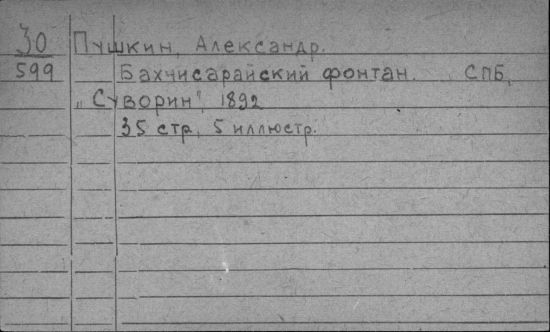 30 Пушкин, Александр.
599 Бахчисарайский фонтан. СПБ,
„Суворин", 1892
35 стр, 5 иллюстр.